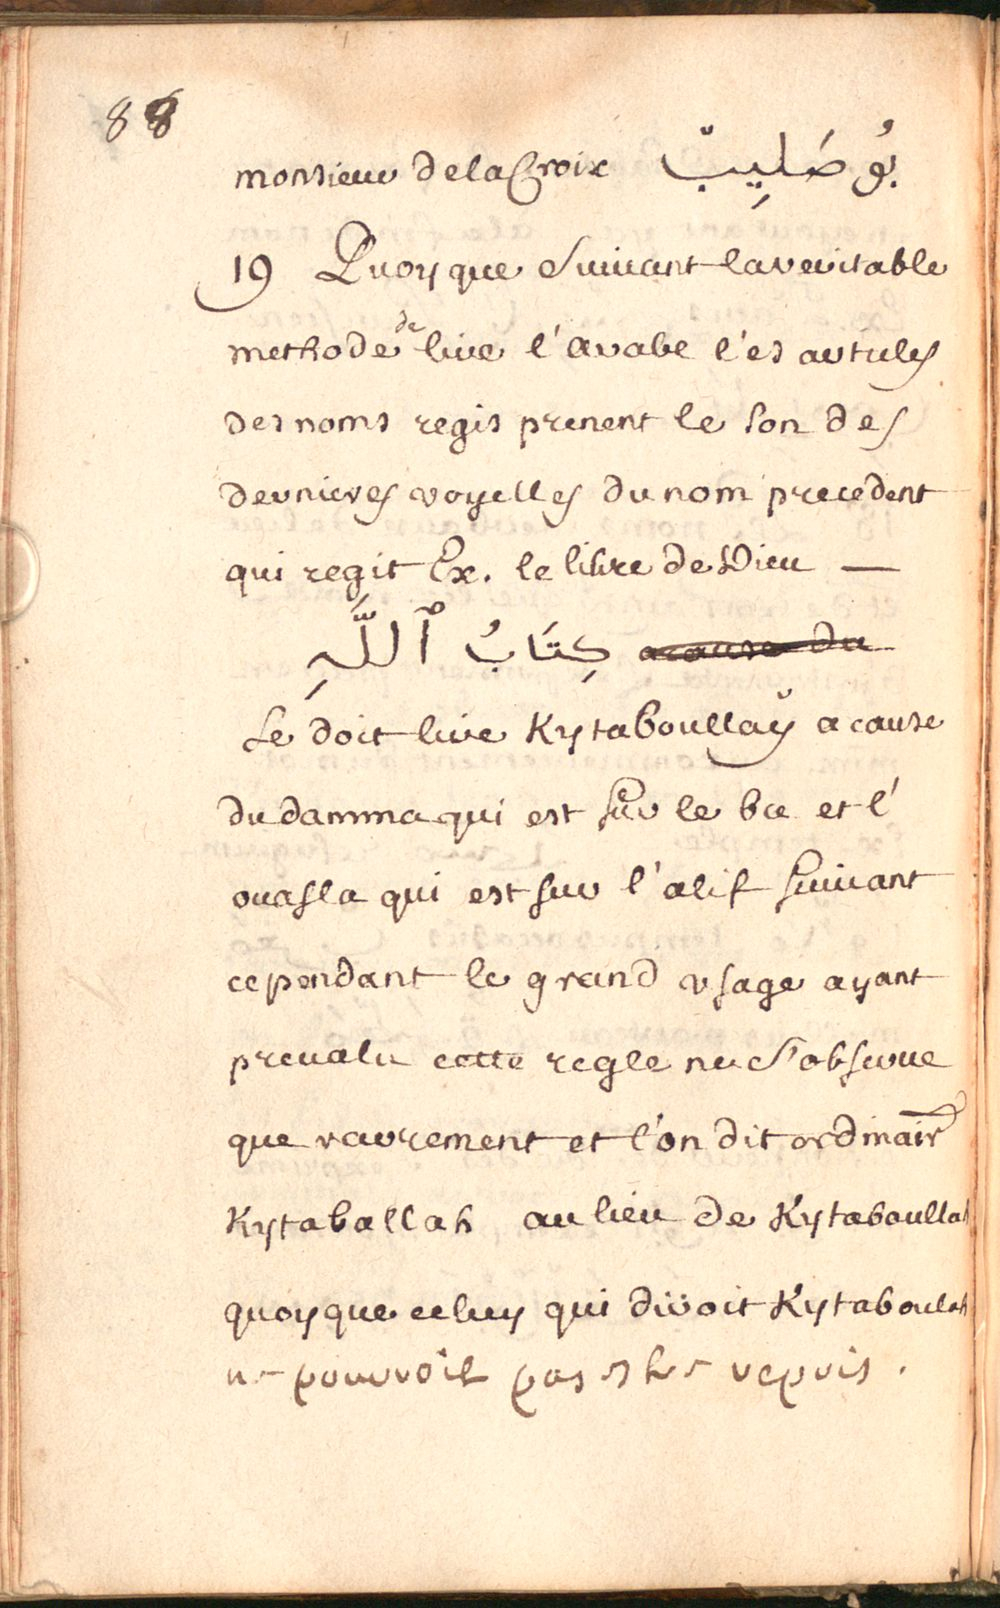 88
monsieur de la Croix بُو صَلِيبْ
19 Quoyque suiuant la veritable
methode de lire l'arabe l'es articles
des noms regis prenent le son des
dernieres voyelles du nom precedent
qui regit Ex. le libre de Dieu —
كِتَابُ ٱللَّهِ a cause du
se doit lire Kytaboullaÿ a cause
du damma qui est sur le be et l'
ouasla qui est sur l'alif suiuant
cependant le grand vsage ayant
preualu cette regle ne s'obserue
que rarement et l'on dit ordinair
Kytaballah au lieu de Kytaboullah
quoyque celuy qui diroit Kytaboulah
ne pouvroit pas estre repris.